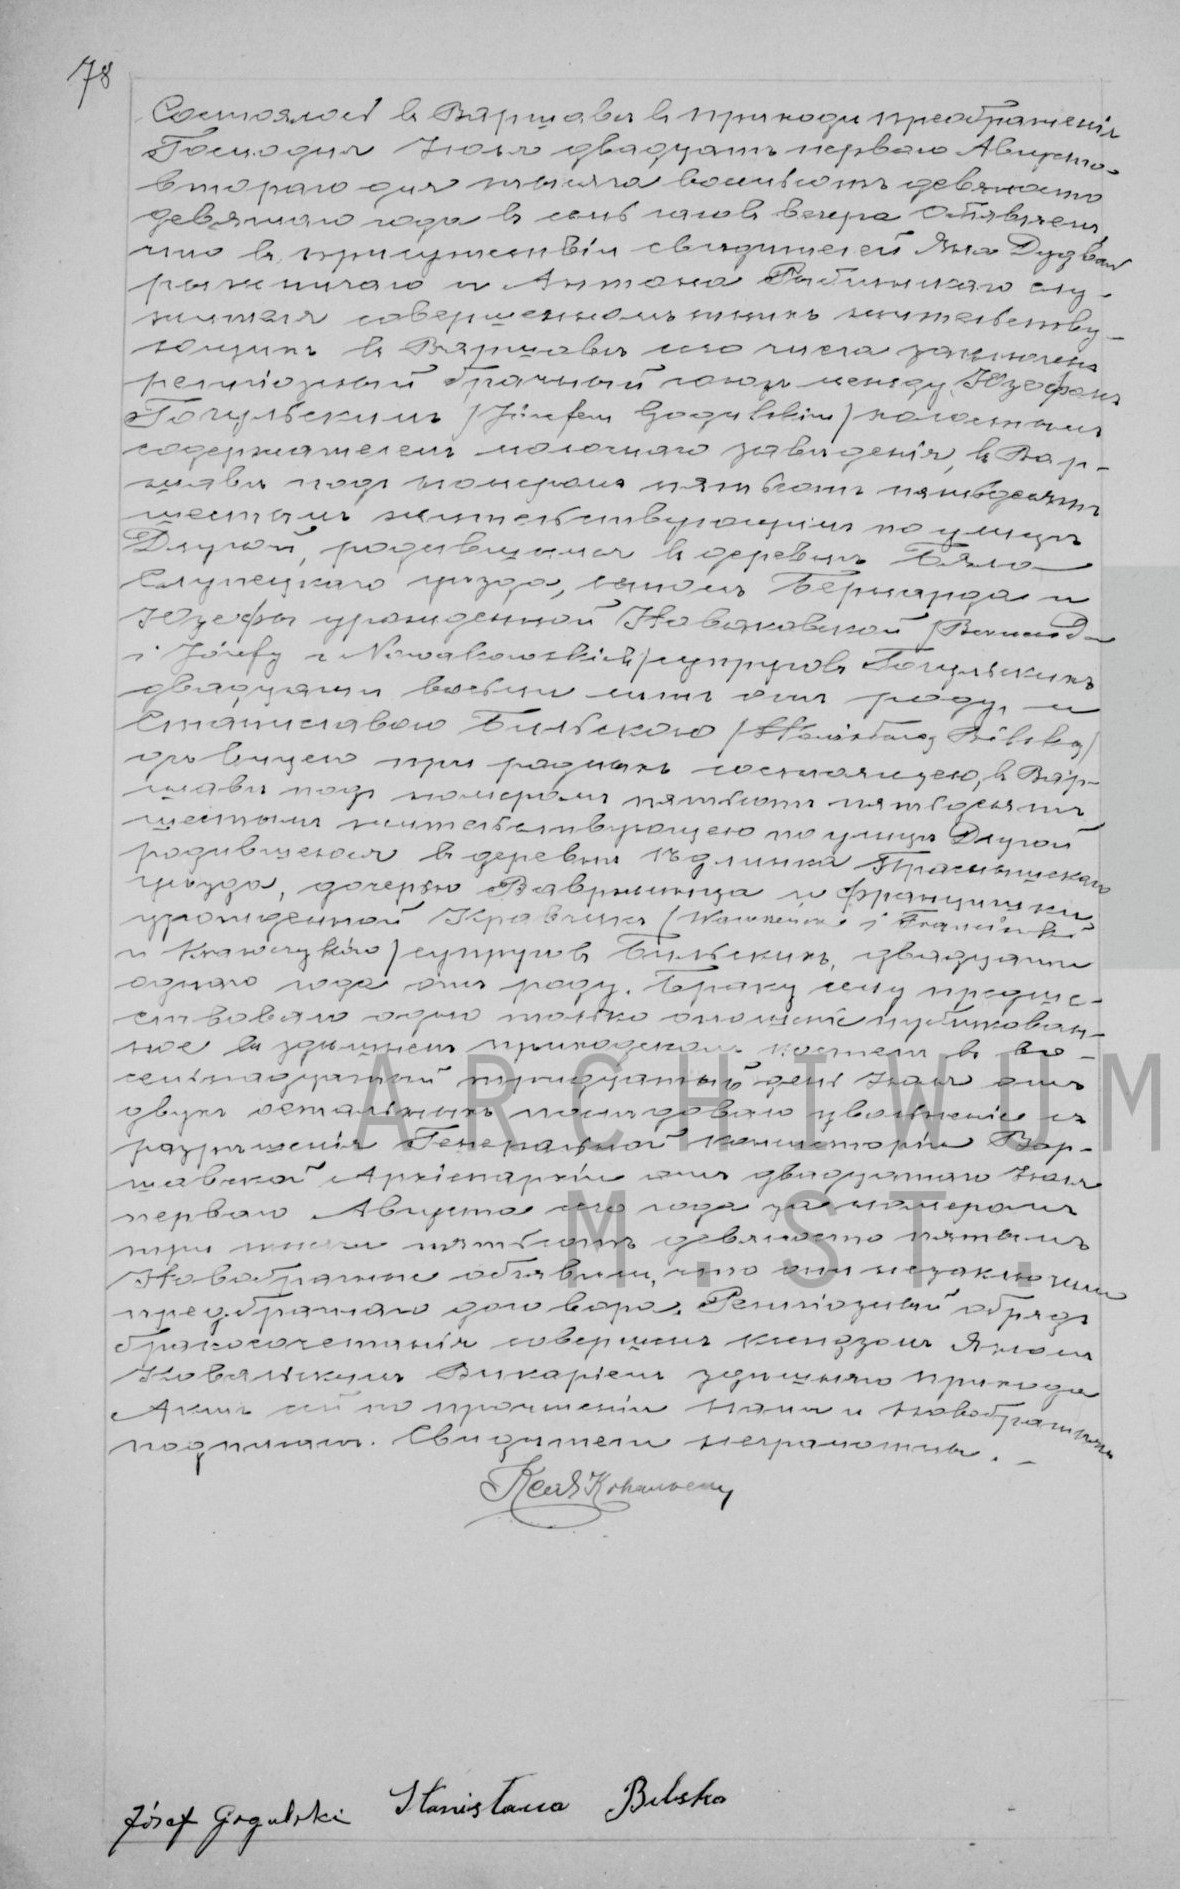 78
Состоялось въ Варшавѣ въ приходѣ преображенія
Господня Іюля двадцать перваго Августа
втораго дня тысяча восемьсотъ девяносто
девятаго года въ семь часовъ вечера Объявляемъ
что въ присутствіи свидѣтелей Яна
и Антона слу-
жителя совершеннолѣтнихъ жительству-
ющихъ въ Варшавѣ сего числа заключенъ
религіозный брачный союзъ между Юзефомъ
Гогульскимъ /Józefem Gogulskim/ холостымъ
содержателемъ молочнаго заведенія, въ Вар-
шавѣ подъ номеромъ пятьсотъ пятьдесятъ
шестымъ жительствующимъ по улицѣ
Длугой, родившимся въ деревнѣ Бяла
Слупецкаго уѣзда, сыномъ Бернарда и
Юзефы урожденной Новаковской /Bernarda
i Józefy z Nowakowskich/ супруговъ Гогульскихъ
двадцати восьми лѣтъ отъ роду, и
Станиславою Бильскою /Stanisławą Bilską/
дѣвицею при родныхъ состоящею, въ Вар-
шавѣ подъ номеромъ пятьсотъ пятьдесятъ
шестымъ жительствующею по улицѣ Длугой
родившеюся въ деревнѣ Праснышскаго
уѣзда, дочерью Вавржинца и Францишки
урожденной Кравчикъ /Wawrzeńca i Franciszki
z Krawczyków/ супруговъ Бильскихъ, двадцати
одного года отъ роду. Браку сему предше-
ствовало одно только оглашеніе публикован-
ное въ здѣшнемъ приходскомъ костелѣ въ во-
семнадцатый тридцатый день Іюля отъ
двухъ остальныхъ послѣдовало увольненіе съ
разрѣшенія Генеральной Консисторіи Вар-
шавской Архіепархіи отъ двадцатаго Іюля
перваго Августа сего года за номеромъ
три тысячи пятьсотъ девяносто пятымъ
Новобрачные объявили, что они не заключили
предбрачнаго договора. Религіозный обрядъ
бракосочетанія совершенъ ксендзомъ Яномъ
Ковальскимъ Викаріемъ здѣшняго прихода
Актъ сей по прочтеніи нами и новобрачными
подписанъ. Свидѣтели неграмотны.
Józef Gogulski Stanisława Bilska
ARCHIWUM
M. ST.